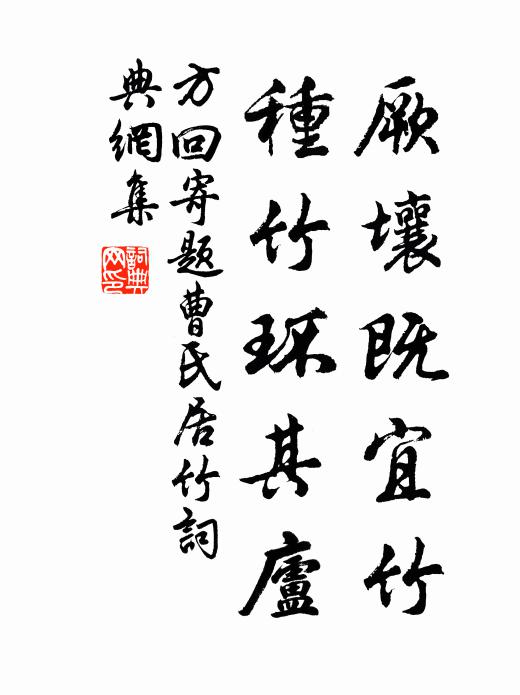 厥壤既宜竹
種竹环其廬
方回寄题曹氏居竹詞
典網集
詞典
网印